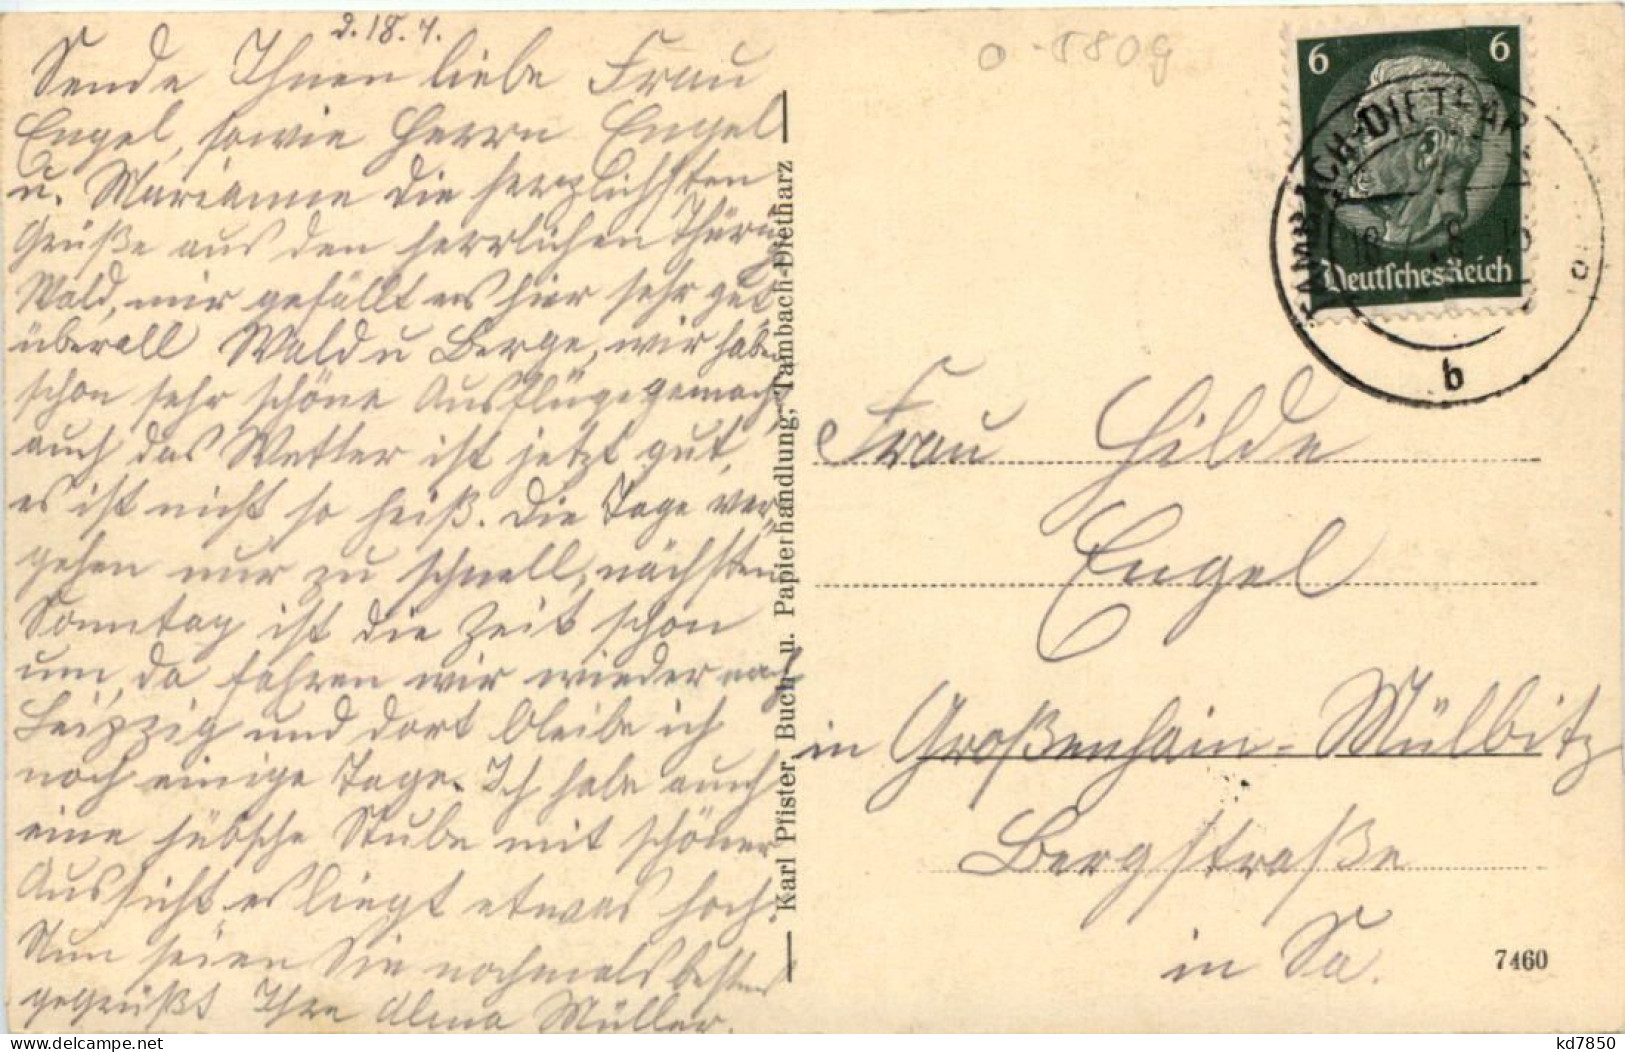 d. 18. 7.
Sende Ihnen liebe Frau
Engel, sowie Herrn Engel
u. Marianne die herzlichsten
Grüße aus den herrlichen Thüring
Wald, mir gefällt es hier sehr gut,
überall Wald u Berge, wir haben
schon sehr schöne Ausflüge gemacht
auch das Wetter ist jetzt gut,
es ist nicht so heiß. Die Tage ver-
gehen nur zu schnell, nächsten
Sonntag ist die Zeit schon
um, da fahren wir wieder nach
Leipzig und dort bleibe ich
noch einige Tage. Ich habe auch
eine hübsche Stube mit schöner
Aussicht, es liegt etwas hoch.
Nun seien Sie nochmals bestens
gegrüßt Ihre Müller.
Karl Pfister, Buch- u. Papierhandlung, Tambach-Dietharz
6 6
Deutsches Reich
TAMBACH-DIETHAR
18
b
Frau Hilde
Engel
in Großenhain-Mülbitz
Bergstraße
in Sa.
7460
kd7850